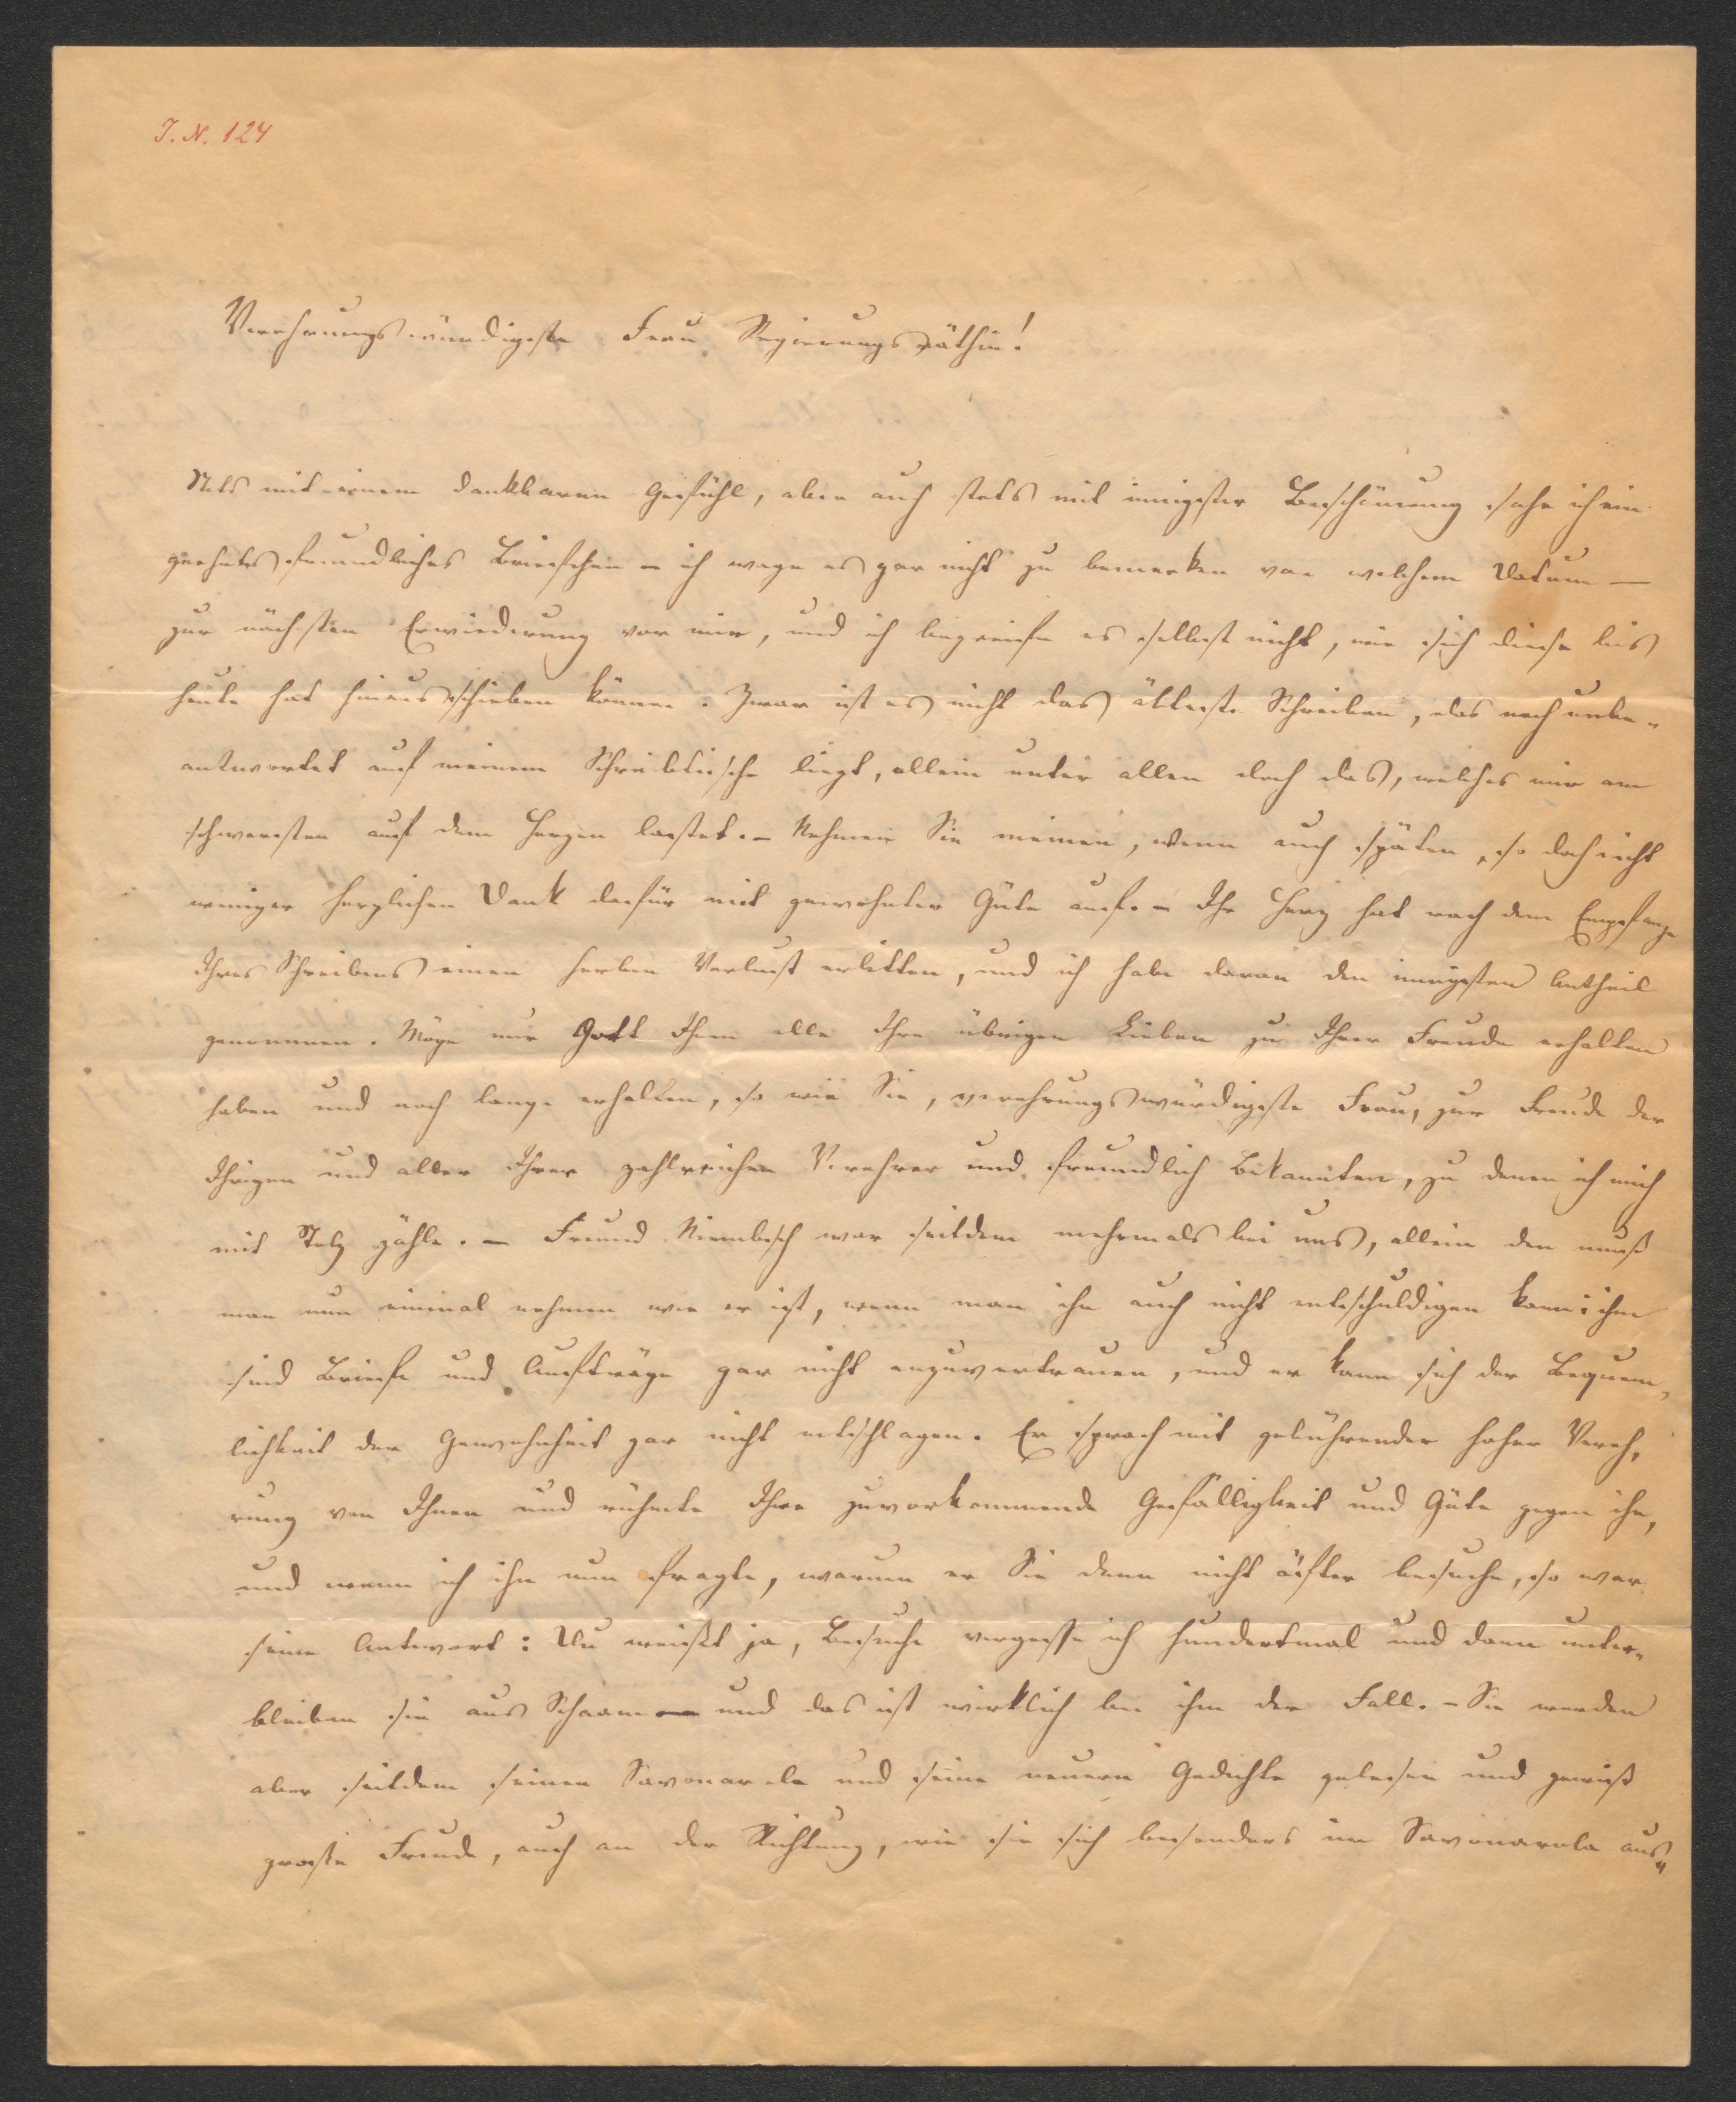 J. N. 124
Verehrungswürdigste Frau Regierungsräthin!
Stets mit einem dankbaren Gefühl, aber auch stets mit innigster Beschämung sehe ich ein
geehrtes freundliches Briefchen – ich wage es gar nicht zu bemerken von welchem Datum –
zur nächsten Erwiederung vor mir, und ich begreife es selbst nicht, wie sich diese bis
heute hat hinausschieben können. Zwar ist es nicht das älteste Schreiben, das noch unbe-
antwortet auf meinem Schreibtische liegt, allein unter allen doch das, welches mir am
schwersten auf dem Herzen lastet. – Nehmen Sie meinen, wenn auch späten, so doch nicht
weniger herzlichen Dank dafür mit gewohnter Güte auf. – Ihr Herz hat nach dem Empfange
Ihres Schreibens einen herben Verlust erlitten, und ich habe daran den innigsten Antheil
genommen. Möge nur Gott Ihnen alle Ihre übrigen Lieben zu Ihrer Freude erhalten
haben und noch lange erhalten, so wie Sie, verehrungswürdigste Frau, zur Freude der
Ihrigen und aller Ihrer zahlreichen Verehrer und freundlich Bekannten, zu denen ich mich
mit Stolz zähle. – Freund Niembsch war seitdem mehrmals bei uns, allein den muß
man nun einmal nehmen wie er ist, wenn man ihn auch nicht entschuldigen kann: ihm
sind Briefe und Aufträge gar nicht anzuvertrauen, und er kann sich der Bequem-
lichkeit der Gewohnheit gar nicht entschlagen. Er sprach mit gebührender hoher Vereh-
rung von Ihnen und rühmte Ihre zuvorkommende Gefälligkeit und Güte gegen ihn,
und wenn ich ihn nun fragte, warum er Sie denn nicht öfter besuche, so war
seine Antwort: Du weißt ja, Besuche vergesse ich hundertmal und dann unter-
bleiben sie aus Schaam – und das ist wirklich bei ihm der Fall. – Sie werden
aber seitdem seinen Savonarola und seine neuern Gedichte gelesen und gewiß
große Freude, auch an der Richtung, wie sie sich besonders im Savonarola aus-